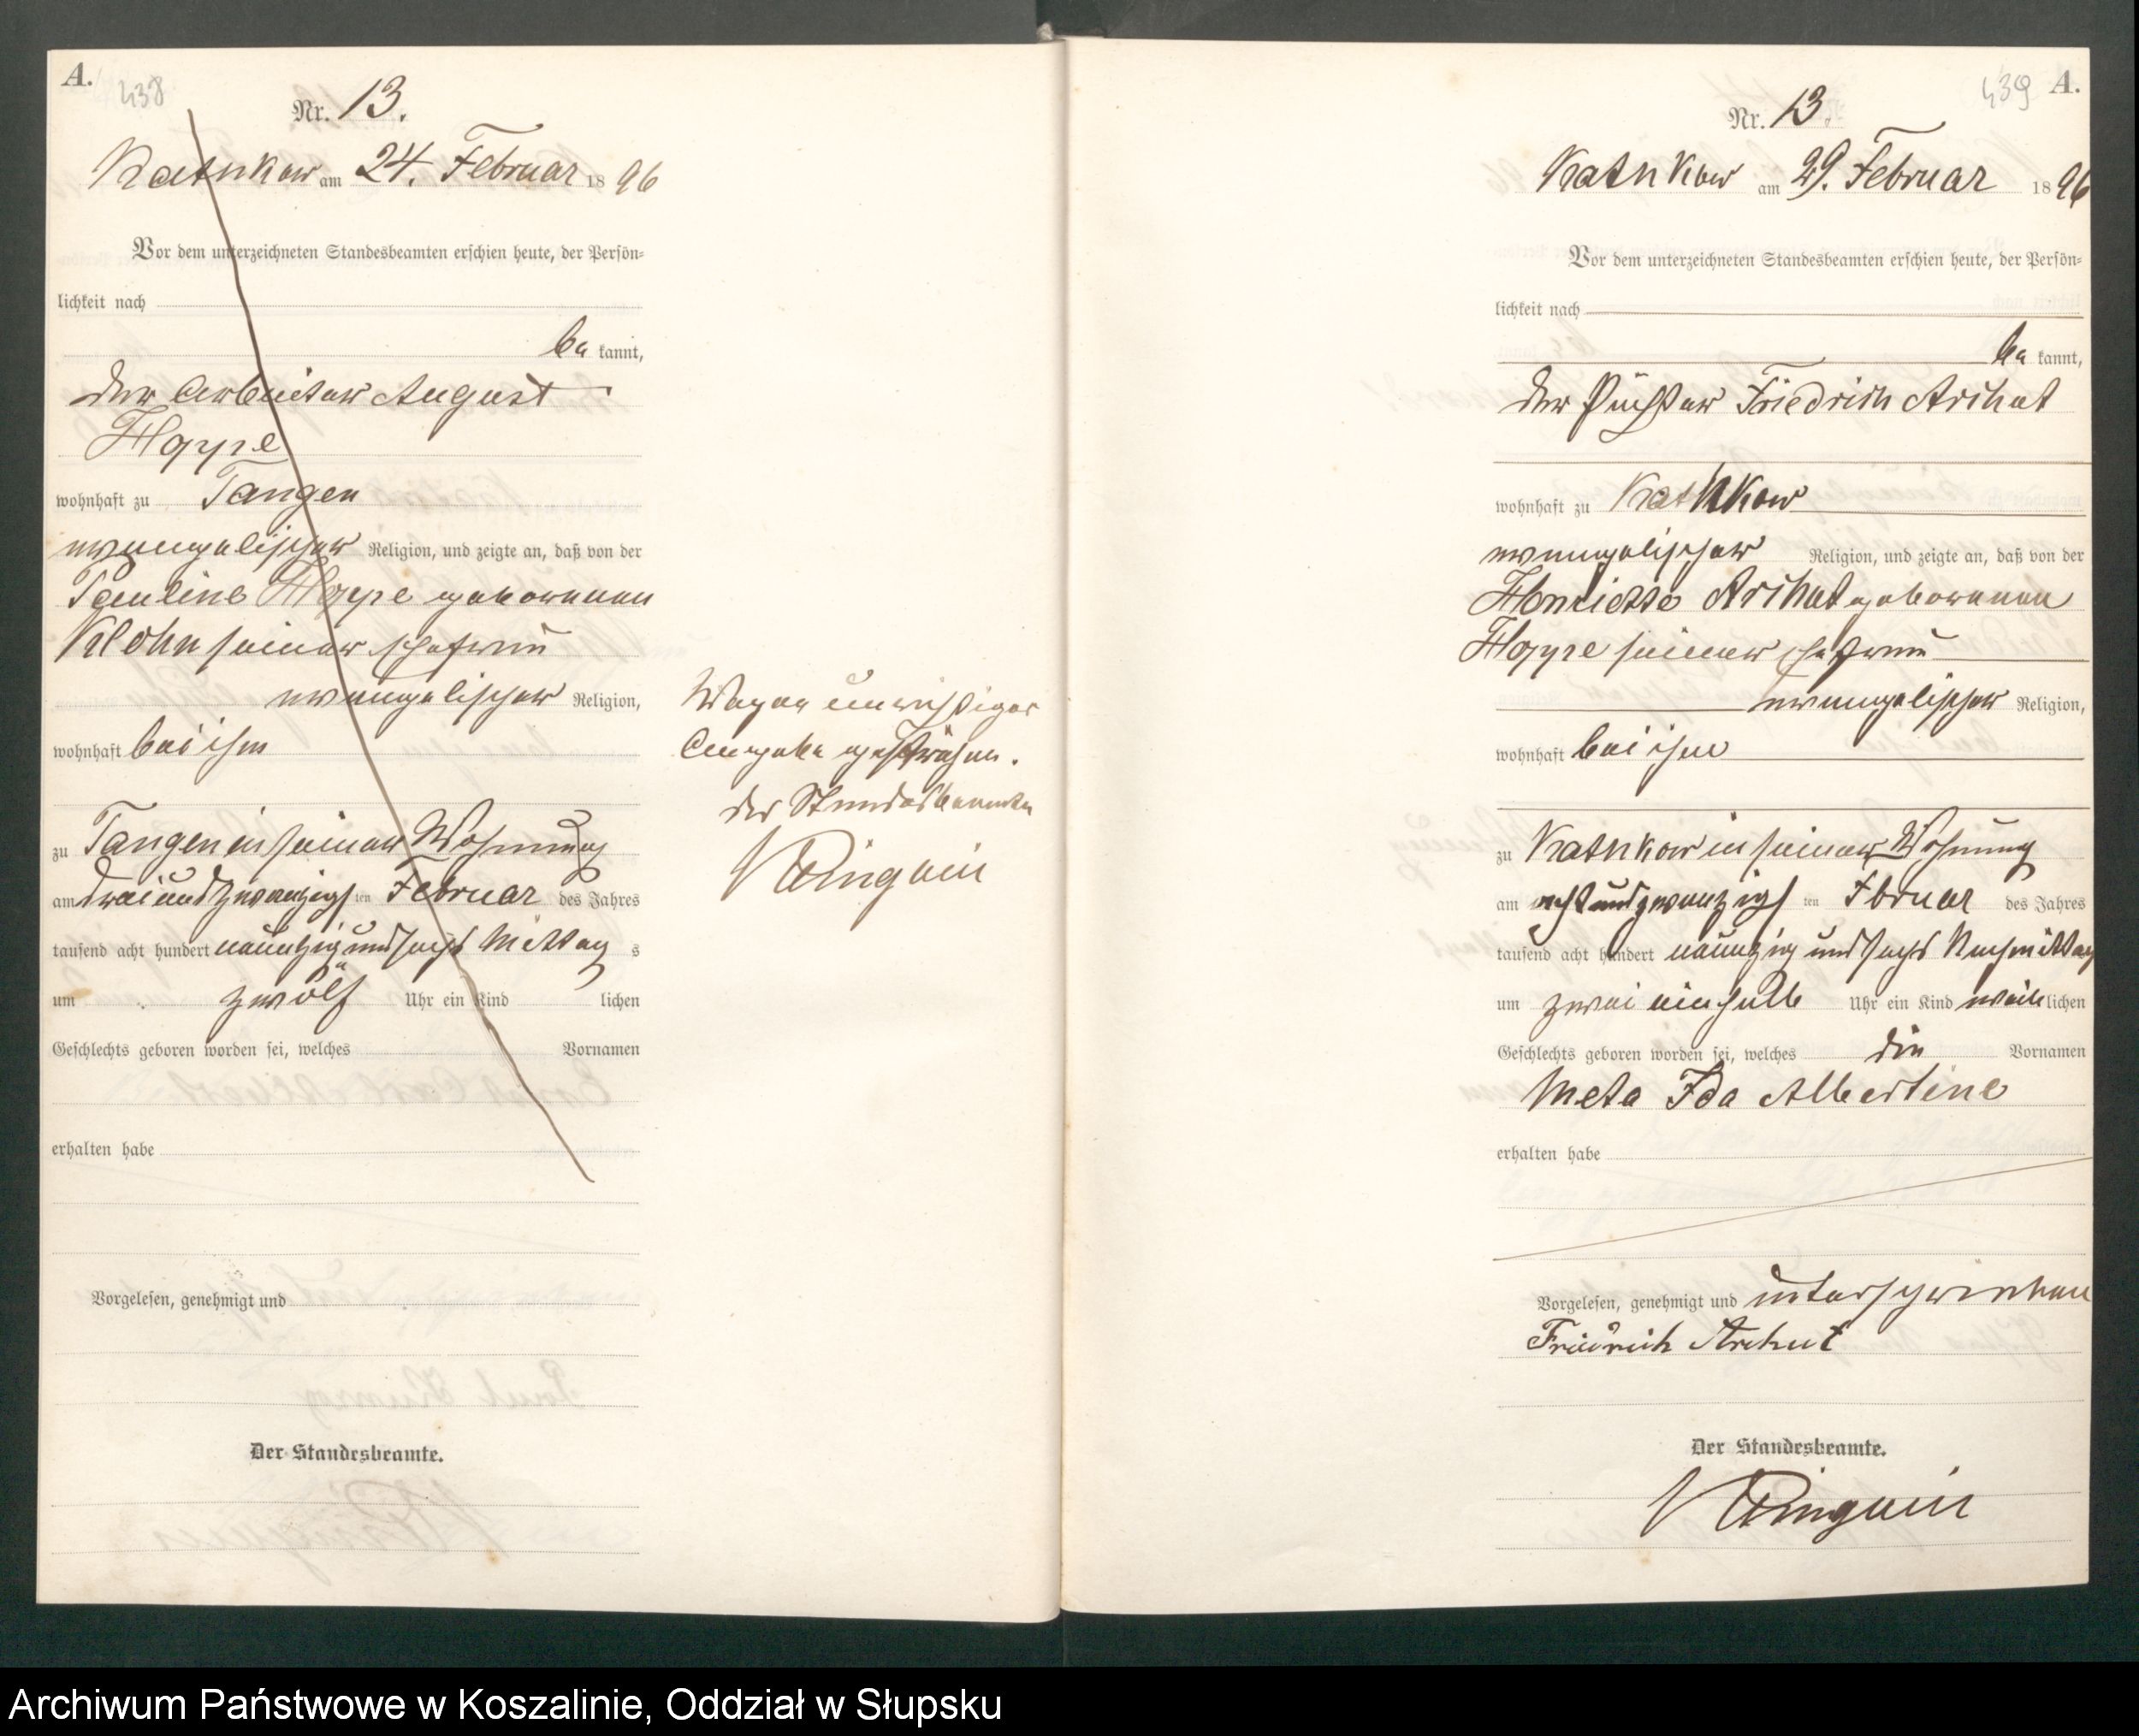 A.
438
Nr. 13.
Kathkow am 24. Februar 1896
Vor dem unterzeichneten Standesbeamten erschien heute, der Persön-
lichkeit nach
be kannt,
der Arbeiter August
Hoppe
wohnhaft zu Tangen
evangelischer Religion, und zeigte an, daß von der
Pauline Hoppe geborenen
Klohn seiner Ehefrau
evangelischer Religion,
wohnhaft bei ihm
zu Tangen in seiner Wohnung
am drei und zwanzigsten Februar des Jahres
tausend acht hundert neunzig und sechs Mittag s
um zwölf Uhr ein Kind lichen
Geschlechts geboren worden sei, welches Vornamen
erhalten habe
Vorgelesen, genehmigt und
Der Standesbeamte.
Wegen unrichtiger
Angabe gestrichen.
Der Standesbeamte
439
A.
Nr. 13.
Kathkow am 29. Februar 1896
Vor dem unterzeichneten Standesbeamten erschien heute, der Persön-
lichkeit nach
be kannt,
der Friedrich Archut
wohnhaft zu Kathkow
evangelischer Religion, und zeigte an, daß von der
Henriette Archut geborenen
Hoppe seiner Ehefrau
evangelischer Religion,
wohnhaft bei ihm
zu Kathkow in seiner Wohnung
am acht und zwanzigsten Februar des Jahres
tausend acht hundert neunzig und sechs Nachmittag
um zwei ein halb Uhr ein Kind weib lichen
Geschlechts geboren worden sei, welches die Vornamen
Meta Ida Albertine
erhalten habe
Vorgelesen, genehmigt und unterschrieben
Friedrich Archut
Der Standesbeamte.
Archiwum Państwowe w Koszalinie, Oddział w Słupsku